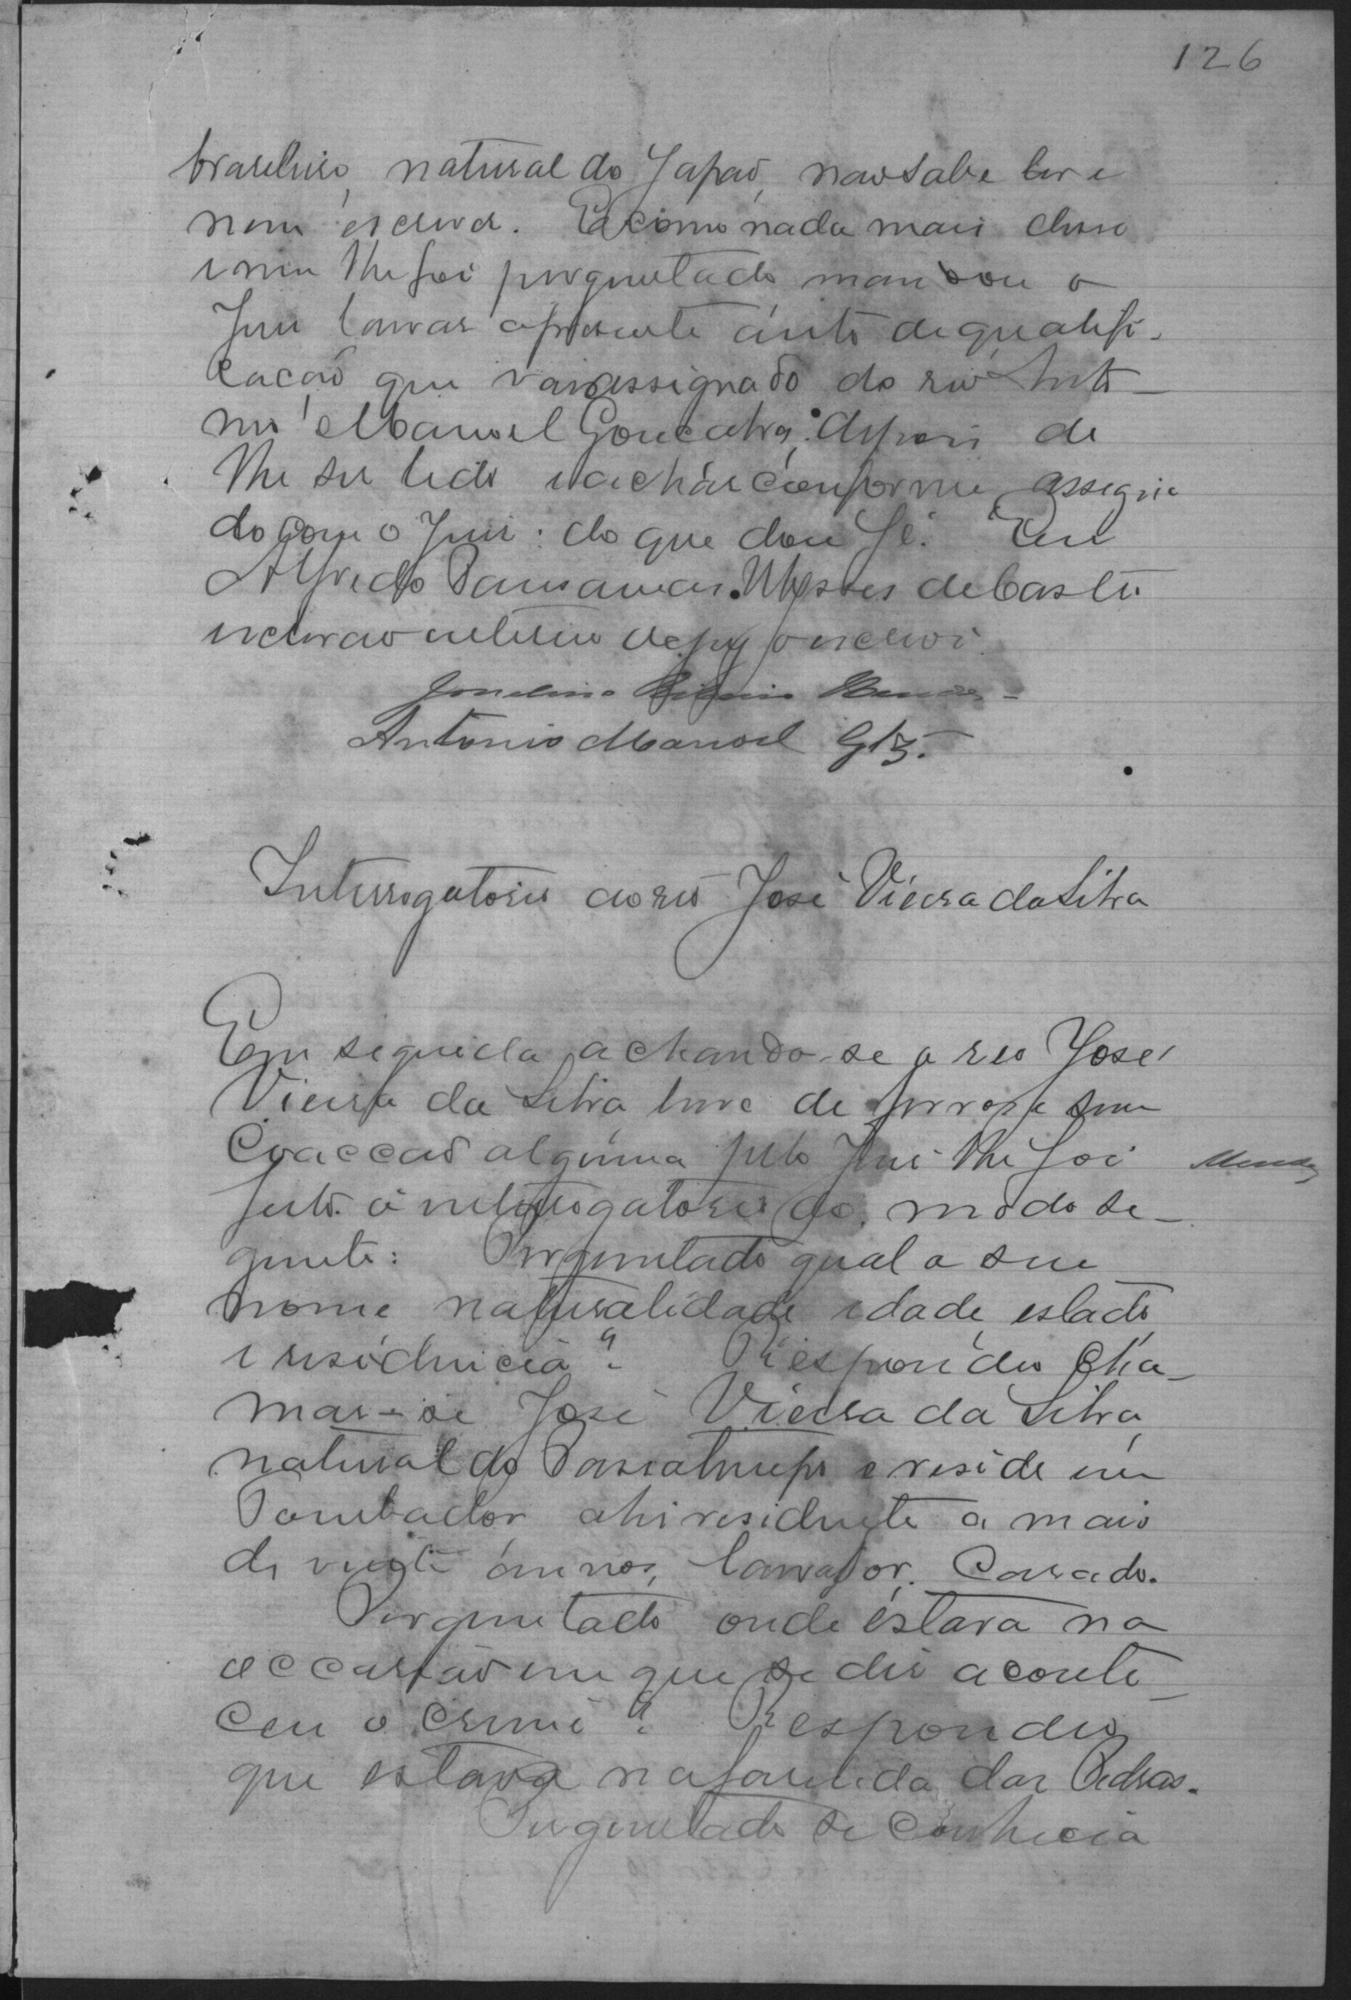 126
brasileiro, natural do Japão, não sabe ler e
nem escrever. E como nada mais disse
e nem lhe foi perguntado mandou o
Juiz lavrar a presente auto de qualifi-
cação que vai assignado do reo Anto-
nio Manoel Gonçalves; depois de
lhe ser lido e achar conforme, assigna
do com o Juiz: do que dou fé. Eu
Alfredo Ulysses de Castro
escrivão interino do jury o escrevi.
Mendes
Antonio Manoel Glz.
Interrogatorio ao reo José Vieira da Silva
Em seguida achando-se o reo José
Vieira da Silva, livre de ferros e sem
coacção alguma pelo Juiz lhe foi
Mendes
feito o interrogatorio do modo se-
guinte: Perguntado qual o seu
nome naturalidade idade, estado
e residencia? Respondeu cha-
mar-se José Vieira da Silva,
natural do e reside em
Pombador ahi residente a mais
de vinte annos, lavrador. Casado.
Perguntado onde estava na
occasião em que se deu aconte-
ceu o crime? Respondeu
que estava na fasenda das Pedras.
Perguntado se conhecia